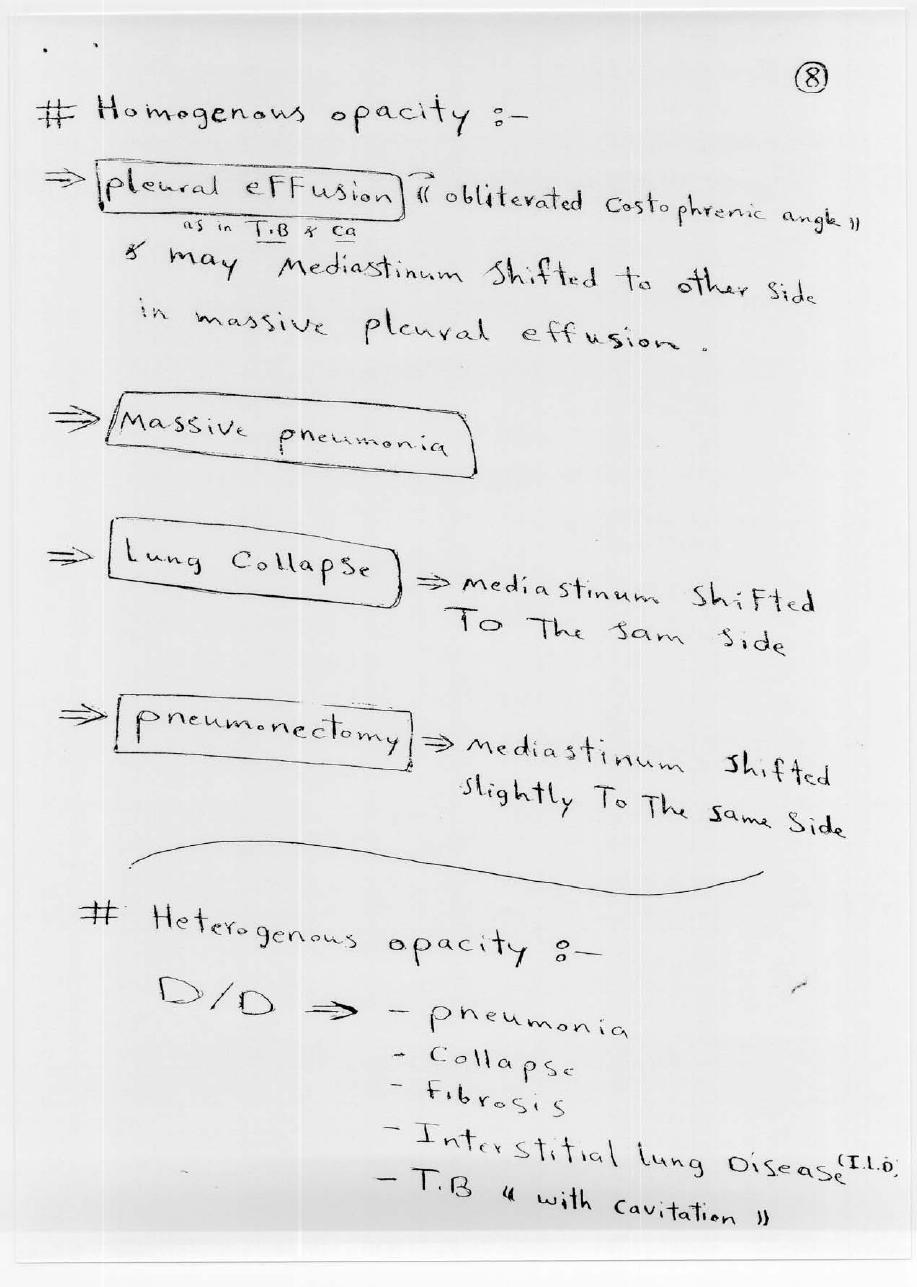 8
# Homogenous opacity :-
⇒ pleural effusion « obliterated Costophrenic angle »
as in T.B & Ca
& may Mediastinum Shifted to other Side
in massive pleural effusion .
⇒ Massive pneumonia
⇒ Lung Collapse ⇒ mediastinum Shifted
To The sam Side
⇒ pneumonectomy ⇒ mediastinum shifted
slightly To The same Side
# Heterogenous opacity :-
D/D ⇒ - pneumonia
- Collapse
- Fibrosis
- Interstitial lung Disease (I.L.D)
- T.B « with cavitation »